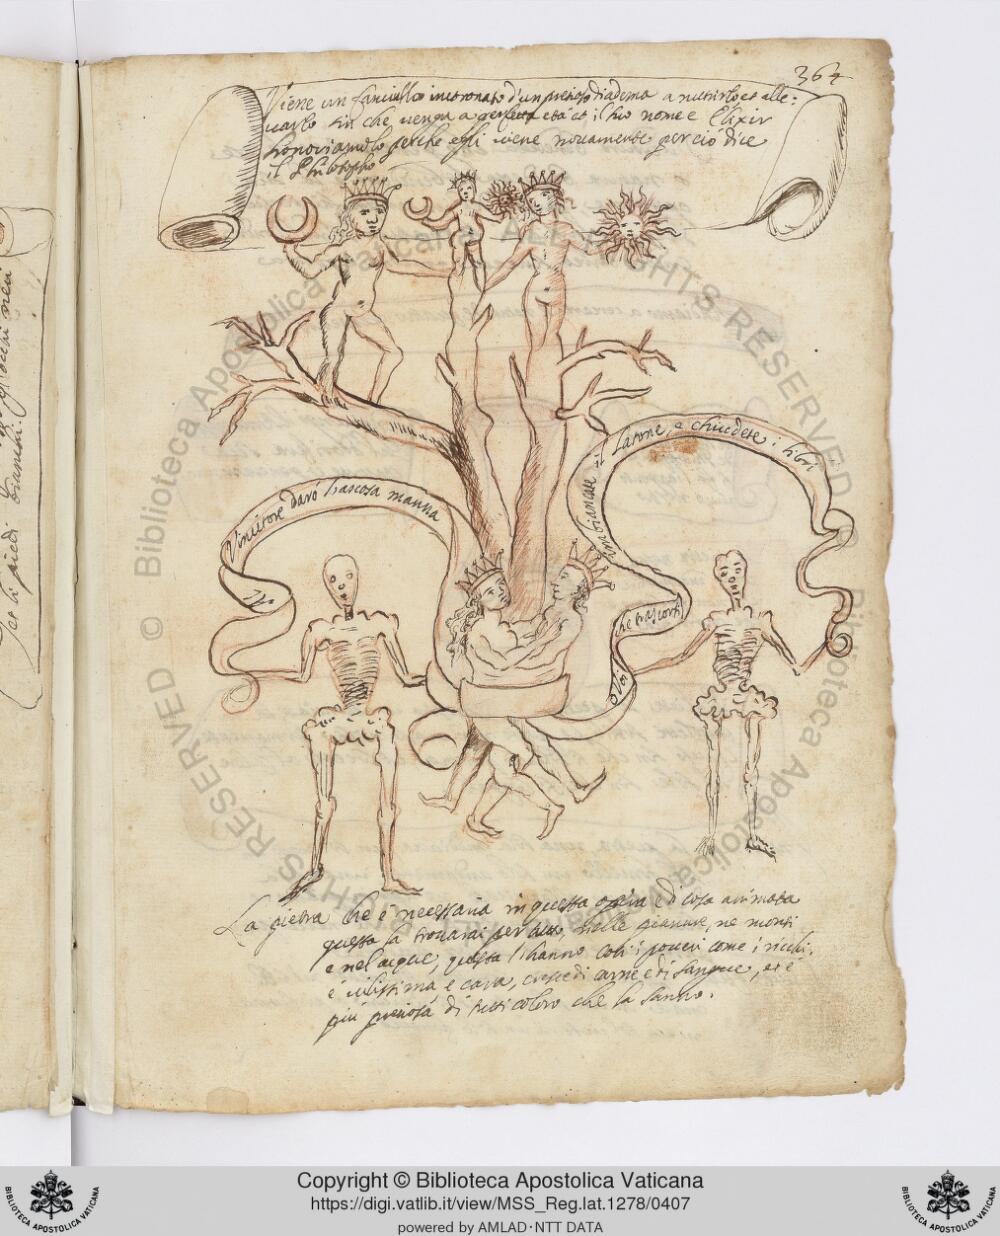 364
Viene un fanciullo incoronato d'un pretioso diadema a nutrirlo et alle:
varlo sin che venga a perfetta età et il suo nome e Elixir
perche egli viene novamente per ciò dice
il Philosopho
Vincitore darò hascosa manna
imbiancate il Latone, e chiudete i libri
O Voi
La pietra che è necessaria in questa opera è di cosa animata
questa la trovarai per tutto nelle pianure, ne monti
e nel acque, questa hanno così i poveri come i ricchi,
è vilissima e cara, cresce di carne e di sangue, et è
più pretiosa di tutti coloro che la sanno.
bianchi.
li piedi
© Biblioteca Apostolica Vaticana ALL RIGHTS RESERVED
Copyright © Biblioteca Apostolica Vaticana
https://digi.vatlib.it/view/MSS_Reg.lat.1278/0407
powered by AMLAD·NTT DATA
BIBLIOTECA APOSTOLICA VATICANA
BIBLIOTECA APOSTOLICA VATICANA